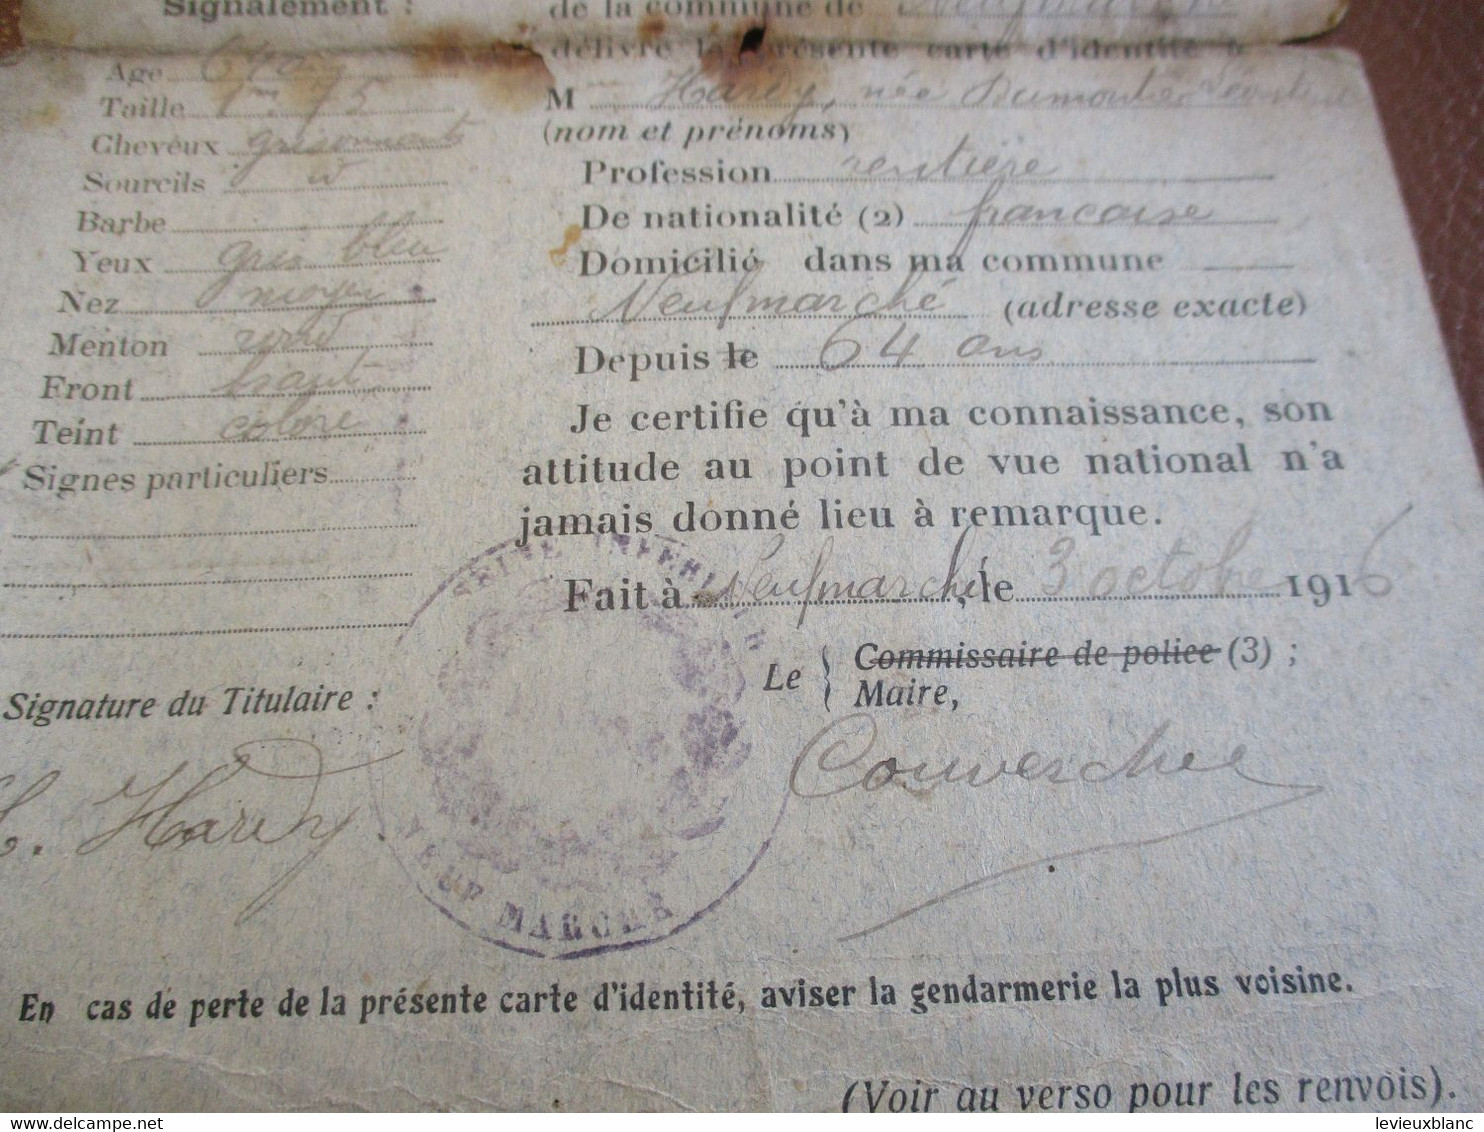 Signalement :
Age 64 ans
Taille 1m 75
Cheveux grisonnants
Sourcils id
Barbe
Yeux gris bleu
Nez moyen
Menton rond
Front haut
Teint coloré
Signes particuliers
Signature du Titulaire :
Hardy
de la commune de Neufmarché
délivre la présente carte d'identité à
M Hardy, née Dumontier
(nom et prénoms)
Profession rentière
De nationalité (2) française
Domicilié dans ma commune
Neufmarché (adresse exacte)
Depuis le 64 ans
Je certifie qu'à ma connaissance, son
attitude au point de vue national n'a
jamais donné lieu à remarque.
Fait à Neufmarché, le 3 octobre 1916
Le { Commissaire de police (3) ;
Maire,
SEINE INFERIEURE
NEUF MARCHÉ
En cas de perte de la présente carte d'identité, aviser la gendarmerie la plus voisine.
(Voir au verso pour les renvois).
www.delcampe.net
levieuxblanc